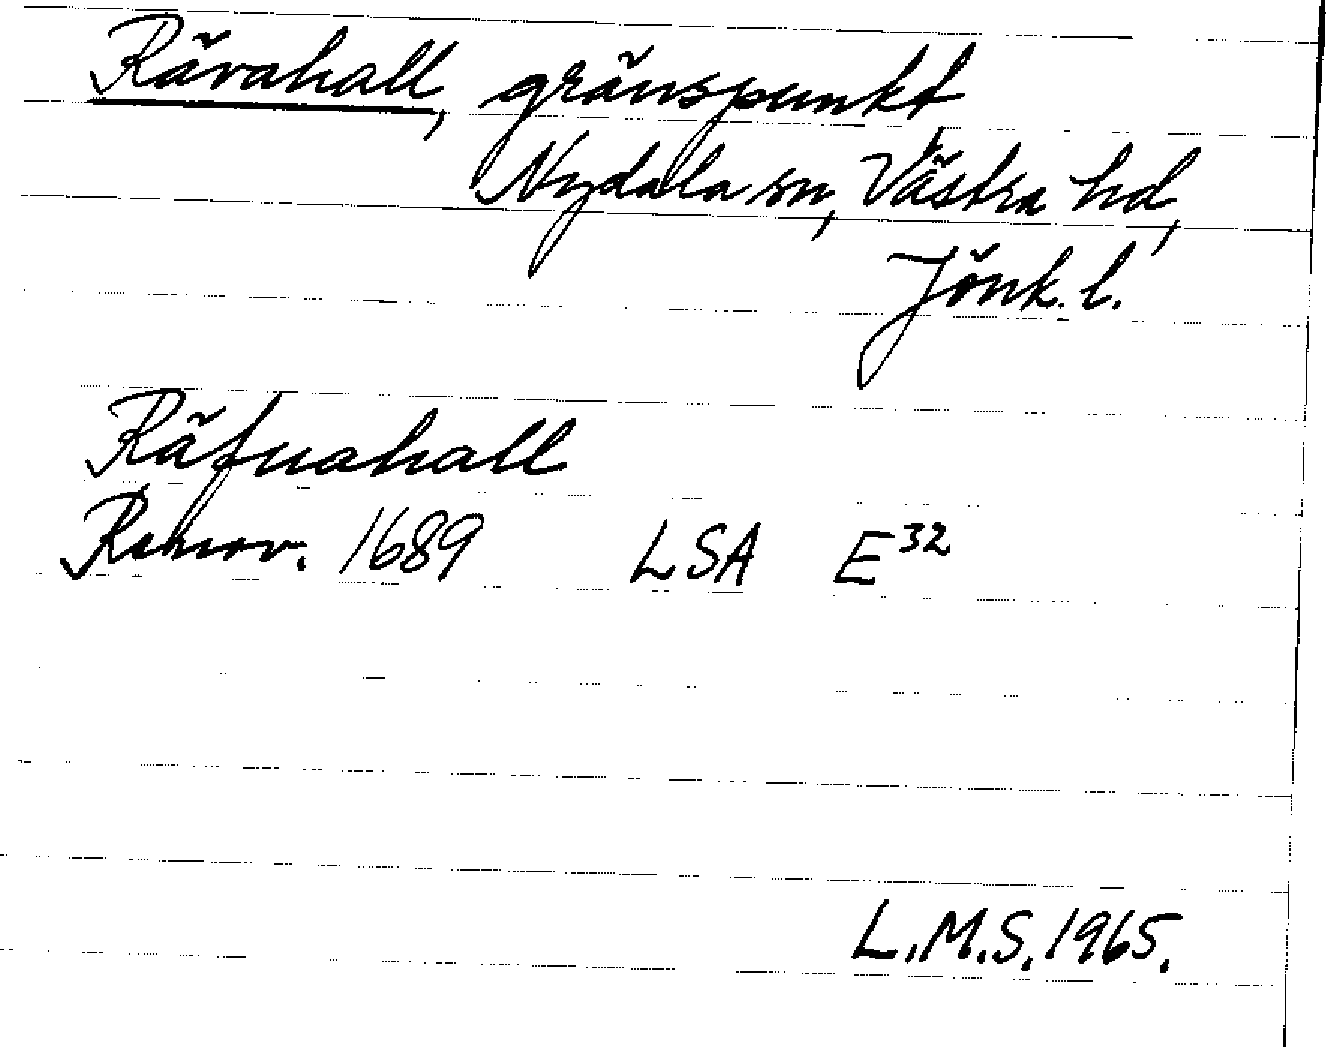 Rävahall, gränspunkt,
Nydala sn, Västra hd,
Jönk. l.
Räfuahall
Renov. 1689 LSA E32
L.M.S. 1965.